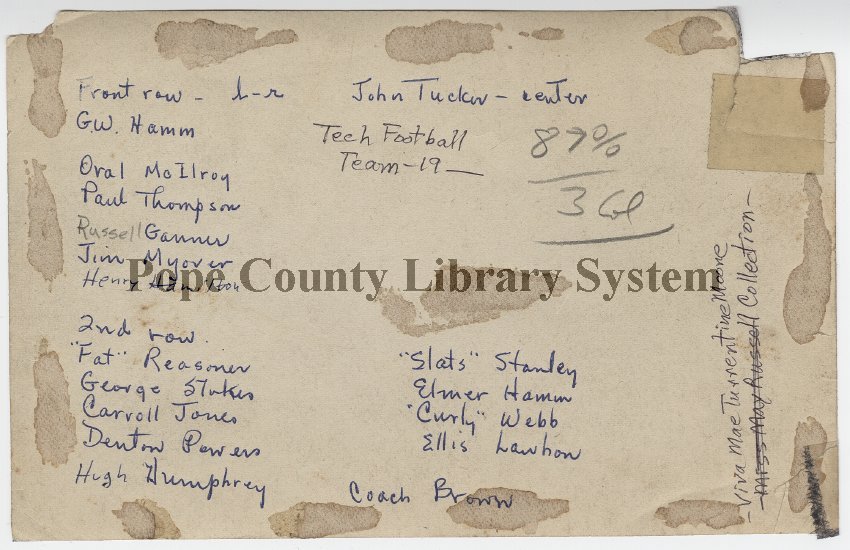 Front row - l-r
G.W. Hamm
Oral McIlroy
Paul Thompson
Russell Ganner
Jim Myover
Henry Hamilton
2nd row.
"Fat" Reasoner
George Stokes
Carroll Jones
Denton Powers
Hugh Humphrey
John Tucker - center
Tech Football
Team - 19__
87%
3 Col
"Slats" Stanley
Elmer Hamm
"Curly" Webb
Ellis Lawhon
Coach Brown
- Viva Mae Turrentine Moore
- Miss May Russell Collection -
Pope County Library System